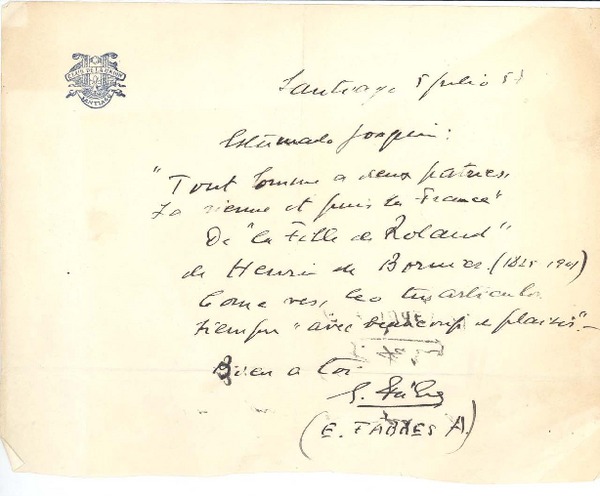 CLUB DE LA UNION
SANTIAGO
Santiago 5 julio 57
Estimado Joaquin:
"Tout homme a deux patries,
La sienne et puis la France"
De "la Fille de Roland"
de Henri de Bornier (1825 1901)
Como ves, leo tus articulos
siempre "avec beaucoup de plaisir".-
Bien a toi
(E. FABRES A.)